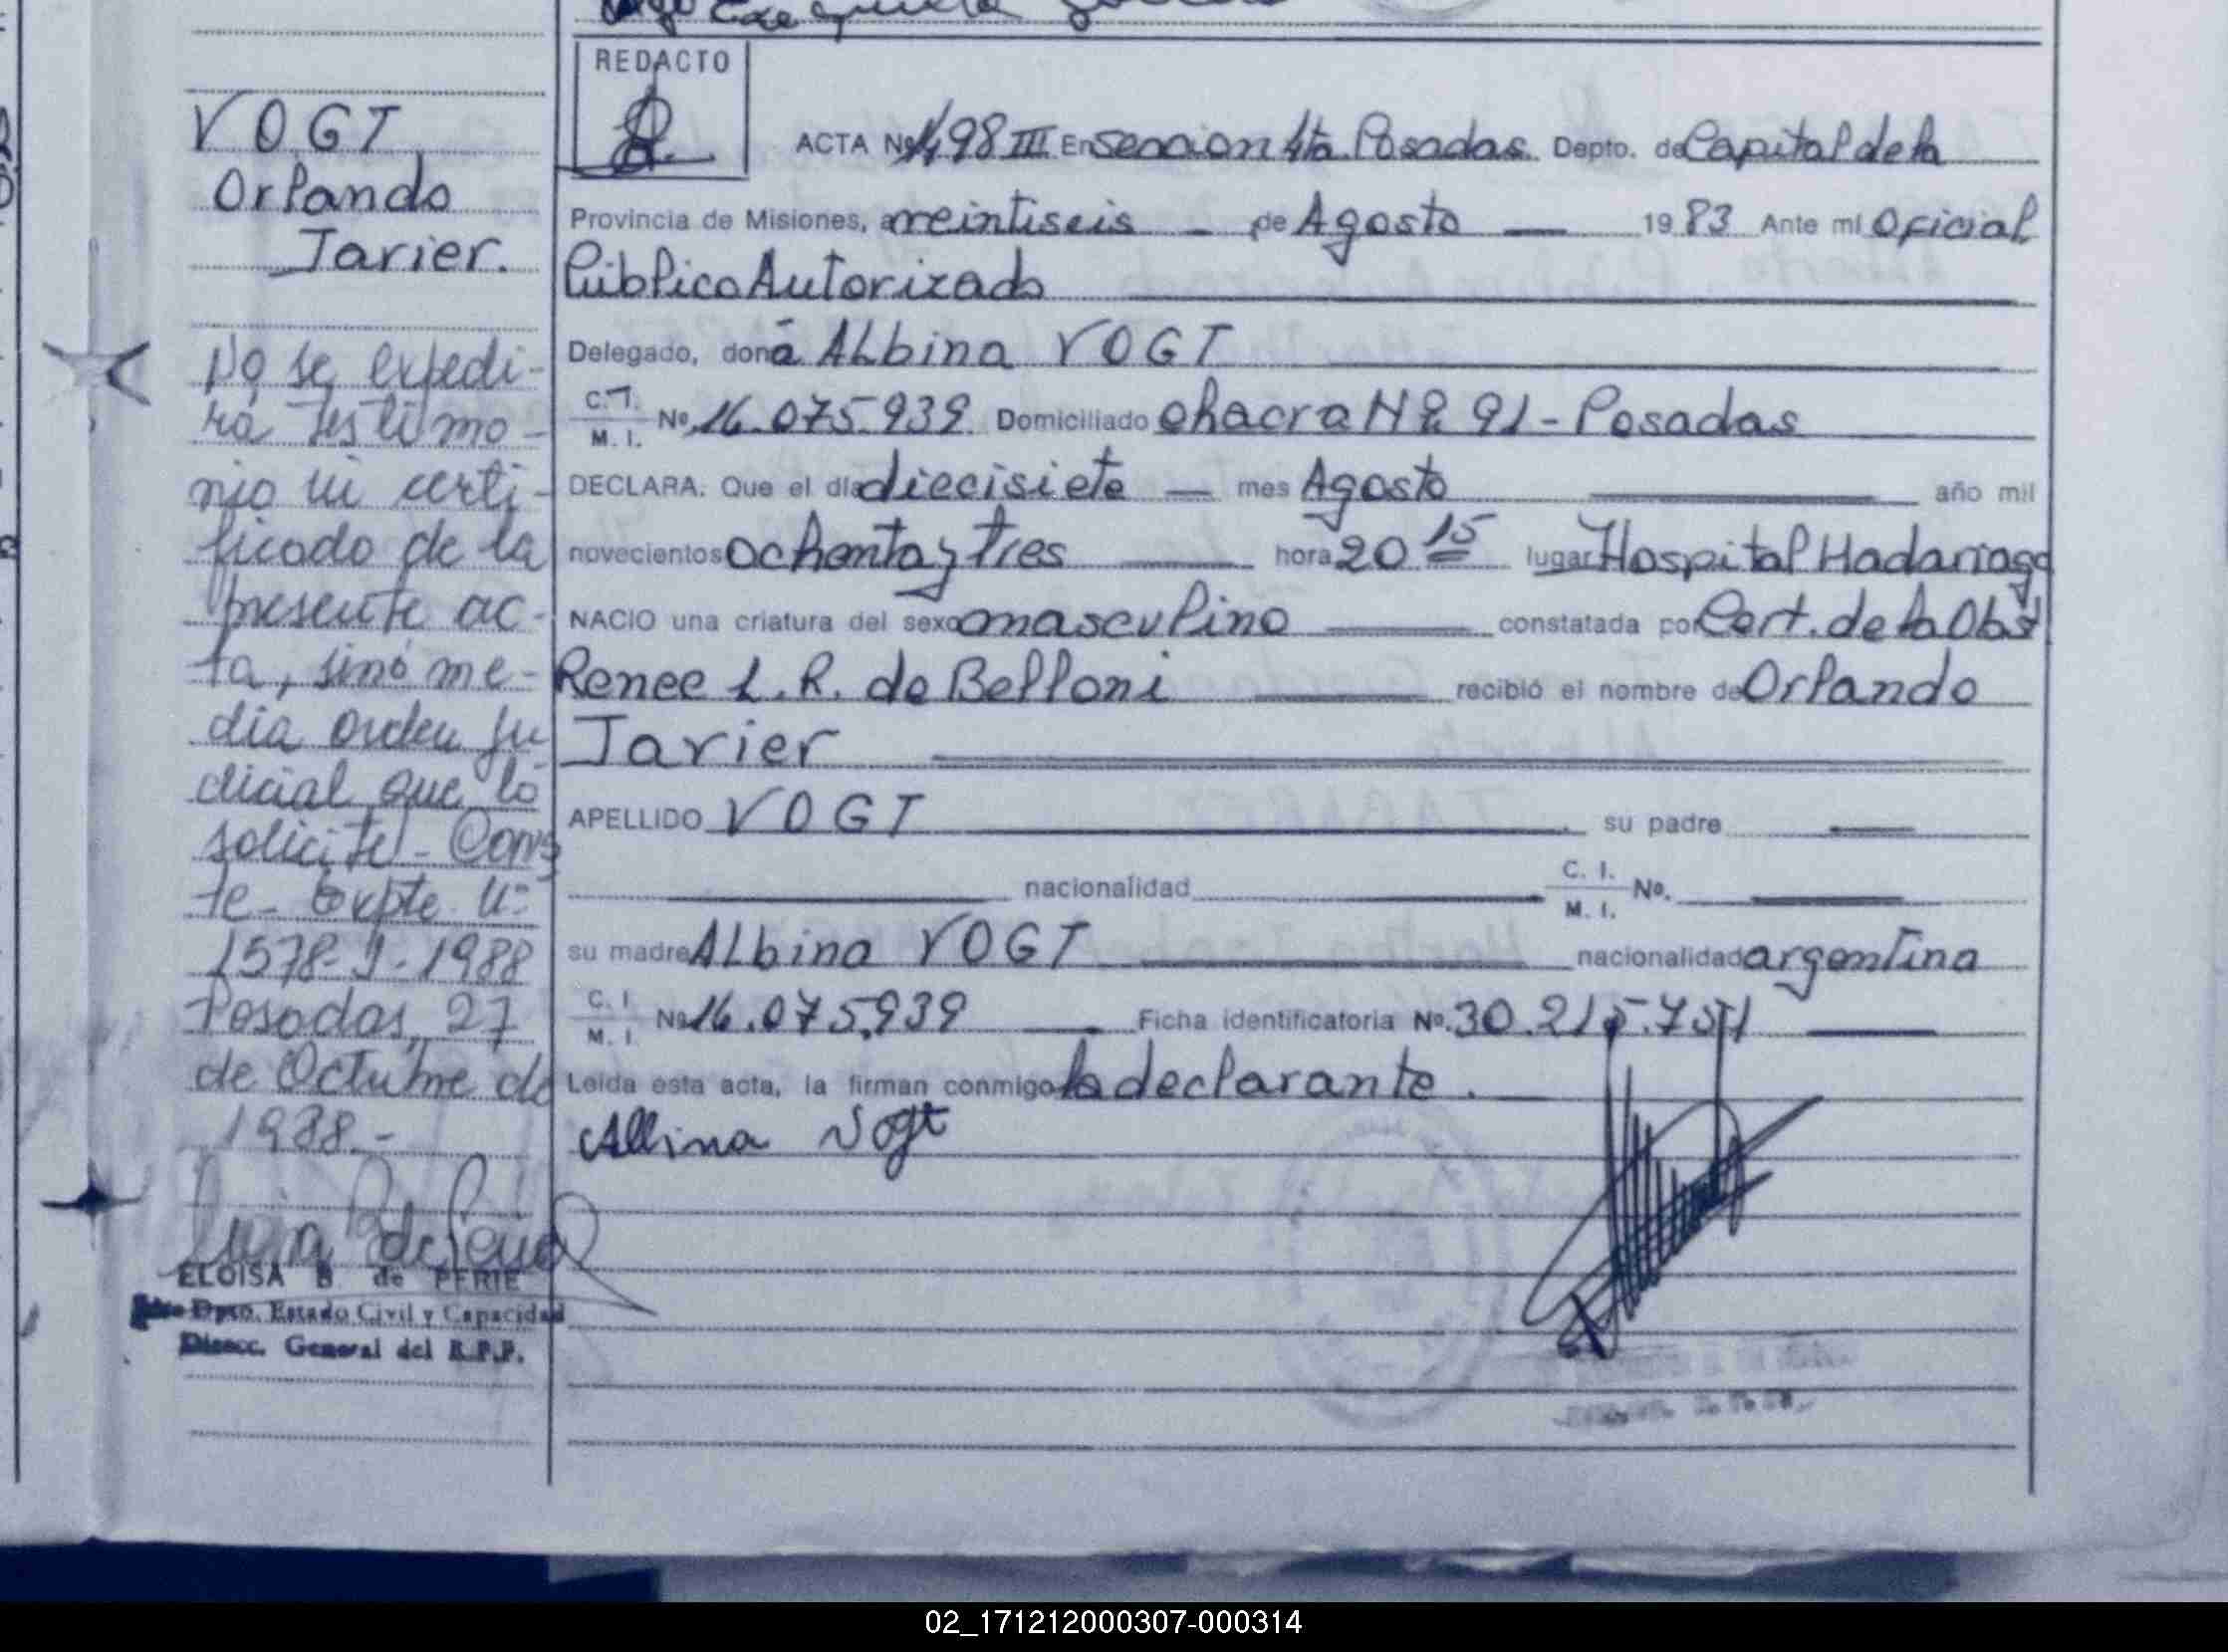 REDACTO
VOGT
Orlando
Javier.
No se expedi-
rá testimo-
nio ni certi-
ficado de la
presente ac-
ta, sinó me-
dia orden ju
dicial que lo
solicite - Cons
te - Expte. Nº
1578-J-1988
Posadas, 27
de Octubre de
1988.-
ELOISA B de PERIE
Dpto. Estado Civil y Capacidad
Direcc. General del R.P.P.
ACTA Nº 1498 III En seccion 4ta Posadas Depto. de Capital de la
Provincia de Misiones, a veintiseis - de Agosto — 1983 Ante mí Oficial
Público Autorizado
Delegado, doña Albina VOGT
C.I. / M. I. Nº 16.075.939 Domiciliado chacra Nº 91 - Posadas
DECLARA: Que el día diecisiete — mes Agosto — año mil
novecientos ochenta y tres — hora 20 15 lugar Hospital Madariaga
NACIO una criatura del sexo masculino — constatada por Cert. de la Obst
Renee L. R. de Belloni — recibió el nombre de Orlando
Javier
APELLIDO VOGT — su padre —
— nacionalidad — C. I. / M. I. Nº. —
su madre Albina VOGT — nacionalidad argentina
C. I / M. I Nº 16.075.939 — Ficha identificatoria Nº. 30.215.751 —
Leída esta acta, la firman conmigo la declarante.
Albina Vogt
02_171212000307-000314